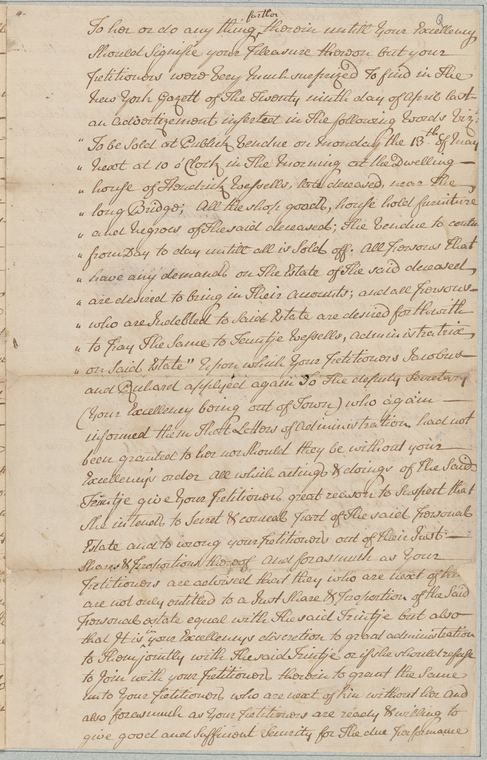 To her or do any thing further therein untill Your Excellency
Should Signifie your Pleasure thereon but your
Petitioners were very much surprized To find in The
New York Gazett of The Twenty ninth day of April last
an advertizement inserted in The following Words Viz:
" To be Sold at Publick Vendue on Monday the 13th of May
" next at 10 o'Clock in The Morning at the Dwelling
" house of Hendrick Wessells, late deceased, near The
" long Bridge; All the shop goods, house hold furniture
" and Negroes of The said deceased; The Vendue to contin
" from Day to day untill all is Sold off. All Persons That
" have any demands on The Estate of The said deceased
" are desired to bring in Their Amounts; and all Persons
" who are Indebted to Said Estate are desired forthwith
" to Pay The Same to Teuntje Wessells, administratrix
" on Said Estate" Upon which Your Petitioners Jacobus
and Richard applyed again To The deputy Secretary
(Your Excellency being out of Town) who again
informed them That Letters of administration had not
been granted to her nor should they be without your
Excellency's order All which actings & doings of The Said
Teuntje give Your Petitioners great reason to Suspect that
She intends to Secret & conceal part of The said Personal
Estate and to wrong your Petitioners out of their Just
Shares & Proportions thereof And forasmuch as Your
Petitioners are advised that they who are next of kin
are not only entitled to a Just Share & Proportion of the Said
Personal estate equal with The said Teuntje but also
that It is in Your Excellency's discretion to grant administration
to Them jointly with The said Teuntje or if she should refuse
to Join with your Petitioners therein to grant the Same
unto Your Petitioners who are next of kin without her and
also forasmuch as Your Petitioners are ready & willing to
give good and Sufficient Security for The due performance